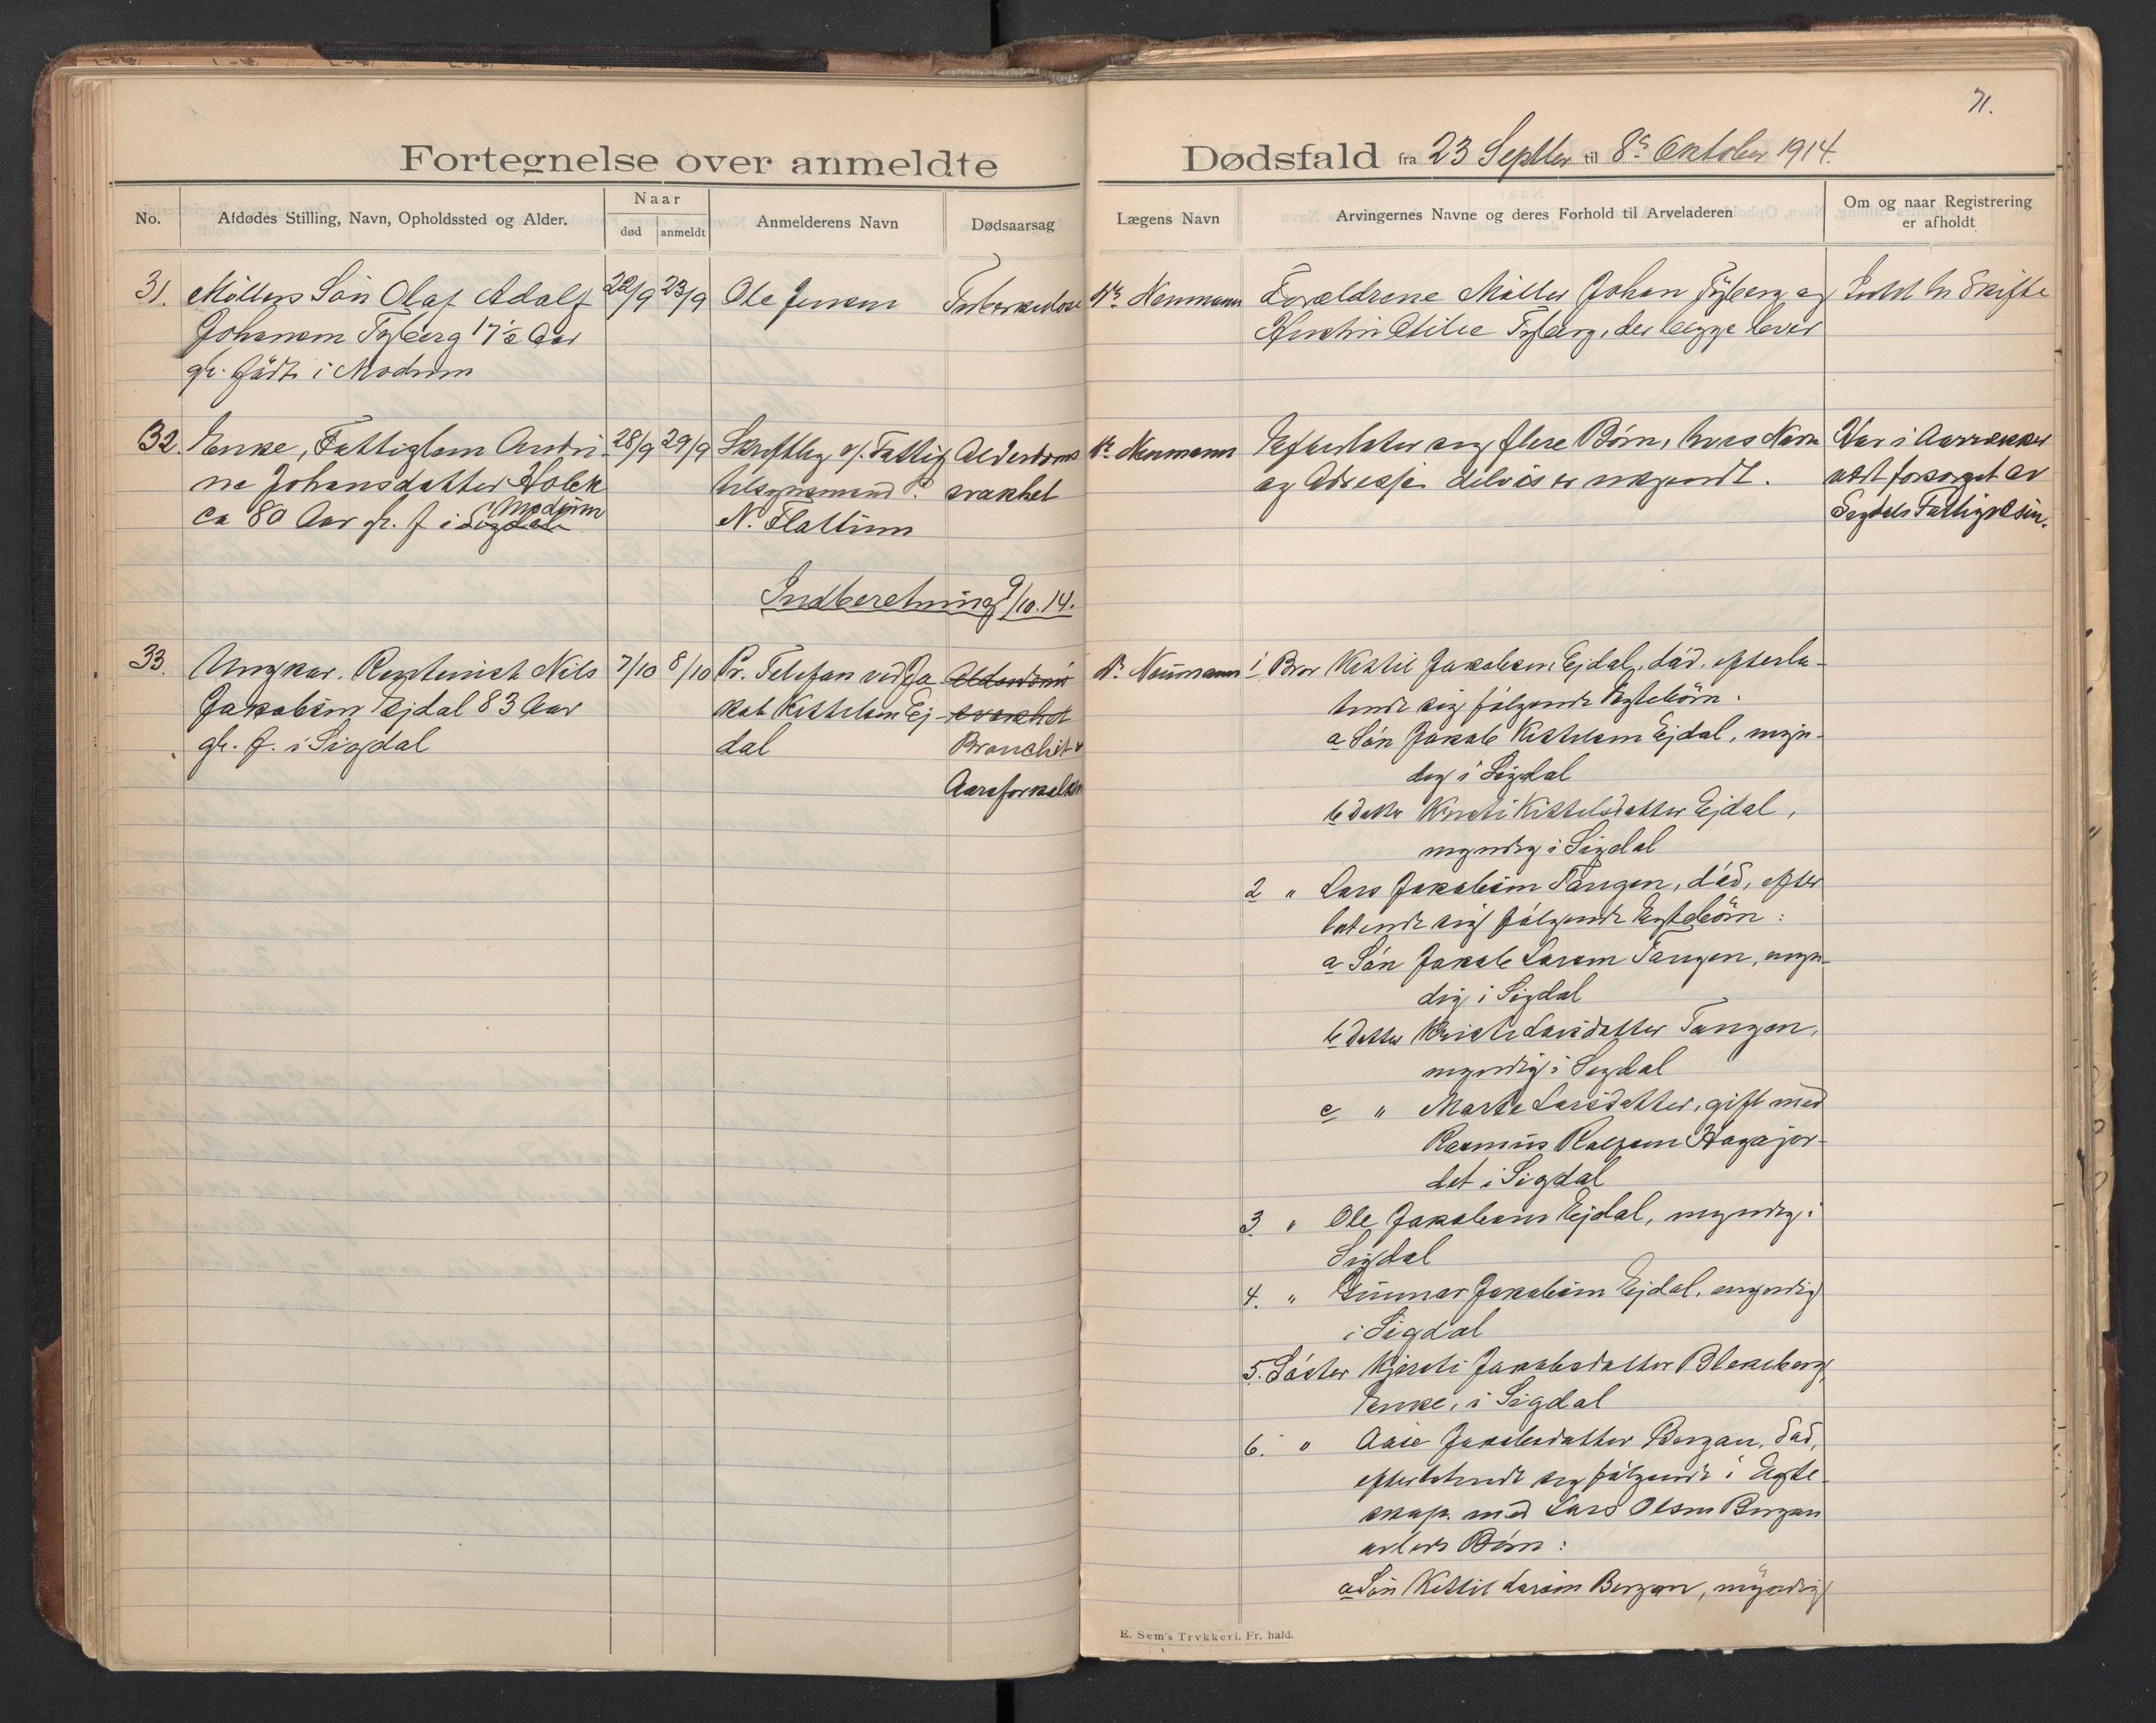 71.
Fortegnelse over anmeldte Dødsfald fra 23 Septbr til 8de Oktober 1914.
No.
Afdødes Stilling, Navn, Opholdssted og Alder.
Naar
død
anmeldt
Anmelderens Navn
Dødsaarsag
Lægens Navn
Arvingernes Navne og deres Forhold til Arveladeren
Om og naar Registrering
er afholdt
31.
Møllers Søn Olaf Adolf
Johansen Fyberg 17½ Aar
gl. født i Modum
22/9
23/9
Ole Jensen
Tuberkulose
Dr. Neumann
Forældrene Møller Johan Fyberg og
Otilie Fyberg, der begge lever
Skifte
32.
Enke, Fattiglem Andri-
ne Johansdatter Holek
ca 80 Aar gl. f. i Sigdal Modum
28/9
29/9
Skriftlig v/. Fattig
tilsynsmand P.
N. Flattum
Alderdoms
svakhet
Dr. Neumann
Efterlater sig flere Børn, hvis Navn
og Adresse delvis er ukjendt.
Var i Aarrekker
vært forsørget av
Sigdals Fattigvæsen.
Indberetning 9/10.14.
33.
Ungkar, Rentenist Nils
Jakobsen Ejdal 83 Aar
gl. f. i Sigdal
7/10
8/10
Pr. Telefon ved Ja-
kob Kittelsen Ej-
dal
Alderdoms
svakhet
Bronchit
Aareforkalkn
Dr. Neumann
1 Bror Kittil Jakobsen Ejdal, død, efterla-
tende sig følgende Egtebørn:
a Søn Jakob Kittelsen Ejdal, myn-
dig i Sigdal
b Datter Kirsti Kittelsdatter Ejdal,
myndig i Sigdal
2 " Lars Jakobsen Tangen, død, efter
latende sig følgende Egtebørn:
a Søn Jakob Larsen Tangen, myn-
dig i Sigdal
b Datter Kirsti Larsdatter Tangen,
myndig i Sigdal
c " Marte Larsdatter, gift med
Rasmus Hagajor-
det i Sigdal
3 " Ole Jakobsen Ejdal, myndig i
Sigdal
4. " Gunnar Jakobsen Ejdal, myndig
i Sigdal
5. Søster Kjersti Jakobsdatter Blekeberg,
Enke, i Sigdal
6. " Aase Jakobsdatter Bergan, død,
efterlatende sig følgende i Egte-
skap med Lars Olsen Bergan
avlede Børn:
a Søn Kittil Larsen Bergan, myndig
E. Sem's Trykkeri. Fr. hald.